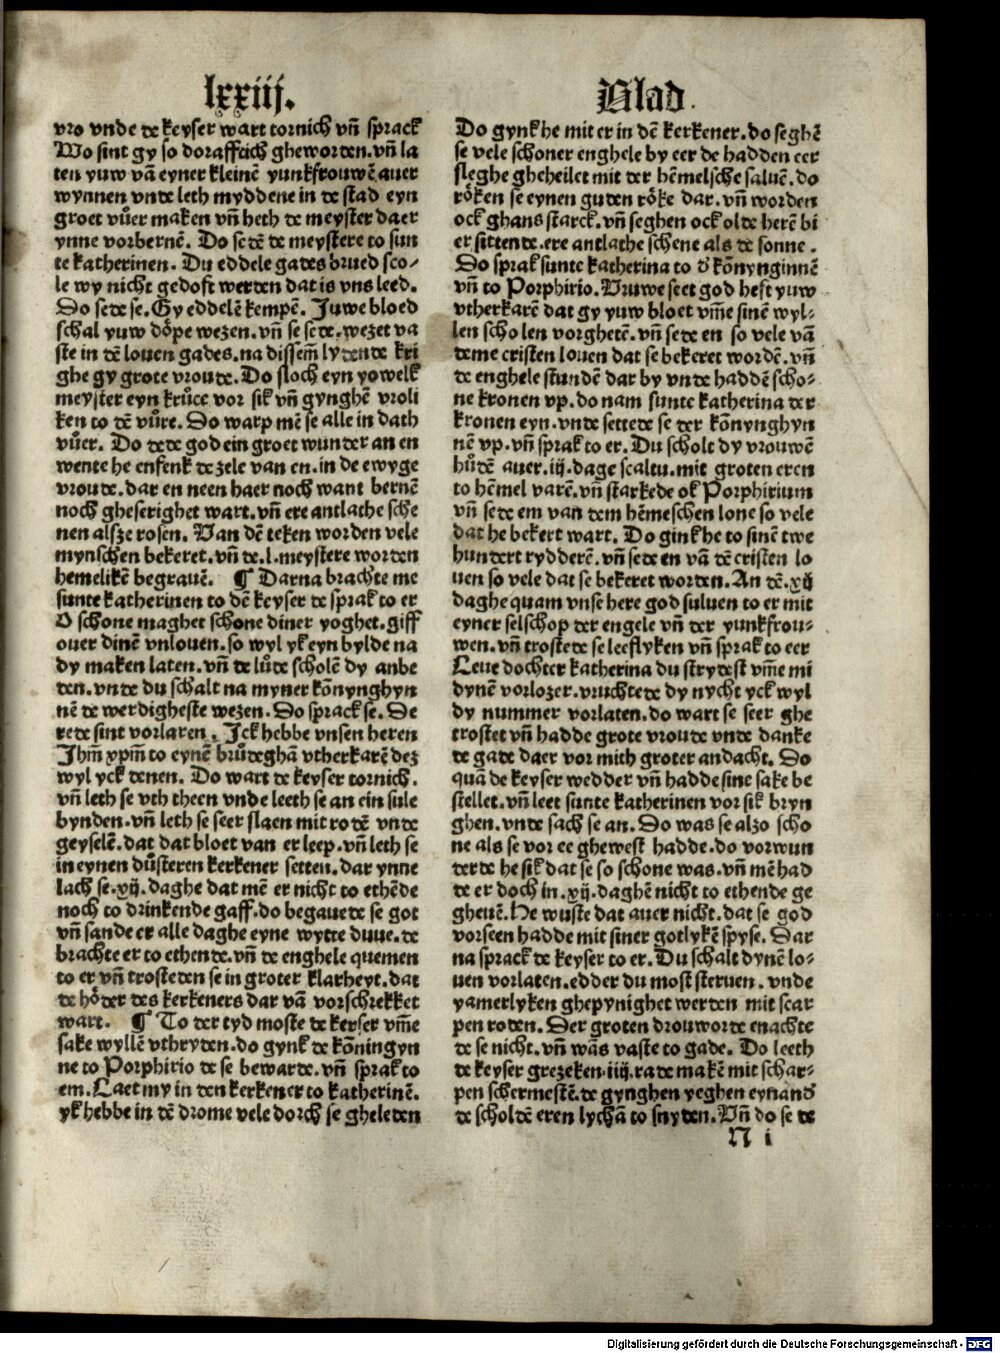 lxxiij.
Blad.
vro vnde de keyser wart tornich vñ sprack
Wo sint gy so dorafftich gheworden. vñ la
ten yuw vā eyner kleinē yunkfrouwē auer
wynnen vnde leth myddene in de stad eyn
groet vůer maken vñ heth de meyster daer
ynne vorbernē. Do sedē de meystere to sun
te katherinen. Du eddele gades brued sco⸗
le wy nicht gedoft werden dat is vns leed.
Do sede se. Gy eddelē kempē. Juwe bloed
schal yuw döpe wezen. vñ se sede. wezet va
ste in dē louen gades. na dissem̄ lydende kri
ghe gy grote vroude. Do sloch eyn yowelk
meyster eyn krůce vor sik vñ gynghē vroli
ken to dē vůre. Do warp mē se alle in dath
vůer. Do dede god ein groet wunder an en
wente he enfenk de zele van en. in de ewyge
vroude. dar en neen haer noch want bernē
noch gheserighet wart. vñ ere antlathe sche
nen alsze rosen. Van dē teken worden vele
mynschen bekeret. vñ de .l. meystere worden
hemelikē begrauē. ¶ Darna brachte me
sunte katherinen to dē keyser de sprak to er
O schone maghet schone diner yoghet. giff
ouer dinē vnlouen. so wyl yk eyn bylde na
dy maken laten. vñ de lůde scholē dy anbe
den. vnde du schalt na myner kōnynghyn
nē de werdigheste wezen. Do sprack se. De
rede sint vorlaren. Jck hebbe vnsen heren
Jhm̄ xpm̄ to eynē brůdeghā vtherkarē dez
wyl yck denen. Do wart de keyser tornich.
vñ leth se vth theen vnde leeth se an ein sule
bynden. vñ leth se seer slaen mit rodē vnde
geyselē. dat dat bloet van er leep. vñ leth se
in eynen důsteren kerkener setten. dar ynne
lach se .xij. daghe dat mē er nicht to ethēde
noch to drinkende gaff. do begauede se got
vñ sande er alle daghe eyne wytte duue. de
brachte er to ethende. vñ de enghele quemen
to er vñ trosteden se in groter klarheyt. dat
de höder des kerkeners dar vā vorschrekket
wart. ¶ To der tyd moste de keyser vm̄e
sake wyllē vthryden. do gynk de kōningyn
ne to Porphirio de se bewarde. vñ sprak to
em. Laet my in den kerkener to katherinē.
yk hebbe in dē drome vele dorch se gheleden
Do gynk he mit er in dē kerkener. do seghē
se vele schoner enghele by eer de hadden eer
sleghe gheheilet mit der hēmelsche saluē. do
röken se eynen guden röke dar. vñ worden
ock ghans starck. vñ seghen ock olde herē bi
er sittende. ere antlathe schene als de sonne.
Do sprak sunte katherina to d̕ kōnynginnē
vñ to Porphirio. Vruwe seet god heft yuw
vtherkarē dat gy yuw bloet vm̄e sinē wyl⸗
len scholen vorghetē. vñ sede en so vele vā
deme cristen louen dat se bekeret wordē. vñ
de enghele stundē dar by vnde haddē scho⸗
ne kronen vp. do nam sunte katherina der
kronen eyn. vnde settede se der kōnynghyn
nē vp. vñ sprak to er. Du scholt dy vrouwē
hůdē auer .iij. dage scaltu. mit groten eren
to hēmel varē. vñ starkede ok Porphirium
vñ sede em van dem hēmeschen lone so vele
dat he bekert wart. Do gink he to sinē twe
hundert rydderē. vñ sede en vā dē cristen lo
uen so vele dat se bekeret worden. An dē .xij
daghe quam vnse here god suluen to er mit
eyner selschop der engele vñ der yunkfrou⸗
wen. vñ trostede se leeflyken vñ sprak to eer
Leue dochter katherina du strydest vm̄e mi
dynē vorlozer. vruchtede dy nycht yck wyl
dy nummer vorlaten. do wart se seer ghe
trostet vñ hadde grote vroude vnde danke
de gade daer vor mith groter andacht. Do
quā de keyser wedder vñ hadde sine sake be
stellet. vñ leet sunte katherinen vor sik bryn
ghen. vnde sach se an. Do was se alzo scho
ne als se vor ee ghewest hadde. do vorwun
derde he sik dat se so schone was. vñ mē had
de er doch in .xij. daghē nicht to ethende ge
gheuē. He wuste dat auer nicht. dat se god
vorseen hadde mit siner gotlykē spyse. Dar
na sprack de keyser to er. Du schalt dynē lo⸗
uen vorlaten. edder du most steruen. vnde
yamerlyken ghepynighet werden mit scar
pen roden. Der groten drouworde enachte
de se nicht. vñ wās vaste to gade. Do leeth
de keyser grezeken .iiij. rade makē mit schar⸗
pen schermestē. de gynghen yeghen eynand̕
de scholdē eren lychā to snyden. Vñ do se de
N i
Digitalisierung gefördert durch die Deutsche Forschungsgemeinschaft - DFG